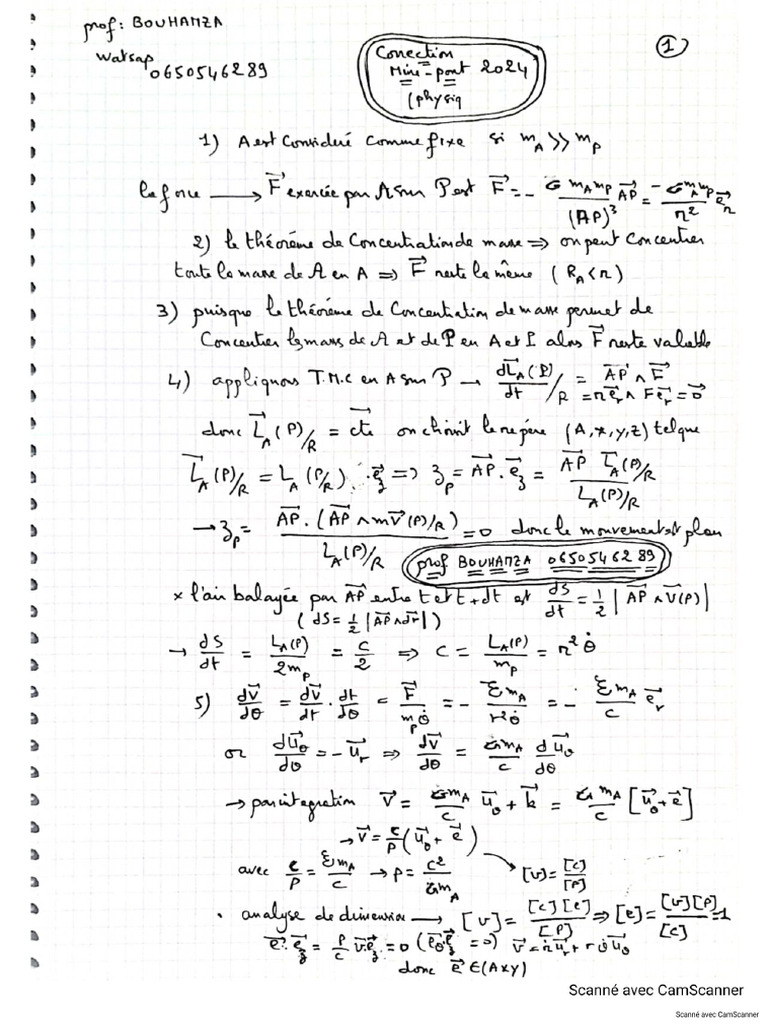 prof: BOUHAMZA
Watsap
0650546289
1
Correction
Mini-pont 2024
(physiq
1) A est Considéré Comme fixe si m_A >> m_P
la force → F⃗ exercée par A sur P est F⃗ = - G m_A m_P / (AP)³ AP⃗ = - G m_A m_P / r² e⃗_r
2) le théorème de Concentration de masse ⇒ on peut Concentrer
toute la masse de A en A ⇒ F⃗ reste la même (R_A < r)
3) puisque le théorème de Concentration de masse permet de
Concentrer les masses de A et de P en A et P alors F⃗ reste valable
4) appliquons T.M.C en A sur P → dL⃗_A(P)/dt /R = AP⃗ ∧ F⃗
= r e⃗_r ∧ F e⃗_r = 0⃗
donc L⃗_A(P)/R = cte⃗ on choisit le repère (A,x,y,z) tel que
L⃗_A(P)/R = L_A(P/R) . e⃗_z ⇒ z_P = AP⃗ . e⃗_z = AP⃗ L⃗_A(P)/R / L_A(P)/R
→ z_P = AP⃗ . (AP⃗ ∧ mV⃗(P)/R) / L_A(P)/R = 0 donc le mouvement est plan
prof BOUHAMZA 0650546289
× l'air balayée par AP⃗ entre t et t+dt est dS/dt = 1/2 | AP⃗ ∧ V⃗(P) |
(dS = 1/2 |AP⃗ ∧ dr⃗|)
→ dS/dt = L_A(P) / 2m_P = C/2 ⇒ C = L_A(P) / m_P = r² θ̇
5) dv⃗/dθ = dv⃗/dt . dt/dθ = F⃗ / m_P θ̇ = - G m_A / r² θ̇ = - G m_A / C e⃗_r
or du⃗_θ/dθ = - u⃗_r ⇒ dv⃗/dθ = G m_A / C du⃗_θ/dθ
→ par integration v⃗ = G m_A / C u⃗_θ + k⃗ = G m_A / C [u⃗_θ + e⃗]
→ v⃗ = C/P (u⃗_θ + e⃗)
avec C/P = G m_A / C → P = C² / G m_A → [v] = [C]/[P]
• analyse de dimension → [v] = [C][e] / [P] ⇒ [e] = [v][P] / [C] = 1
e⃗ . e⃗_z = P/C v⃗ . e⃗_z = 0 (e⃗_θ . e⃗_z = 0) v⃗ = ṙ u⃗_r + r θ̇ u⃗_θ
donc e⃗ ∈ (Axy)
Scanné avec CamScanner
Scanné avec CamScanner